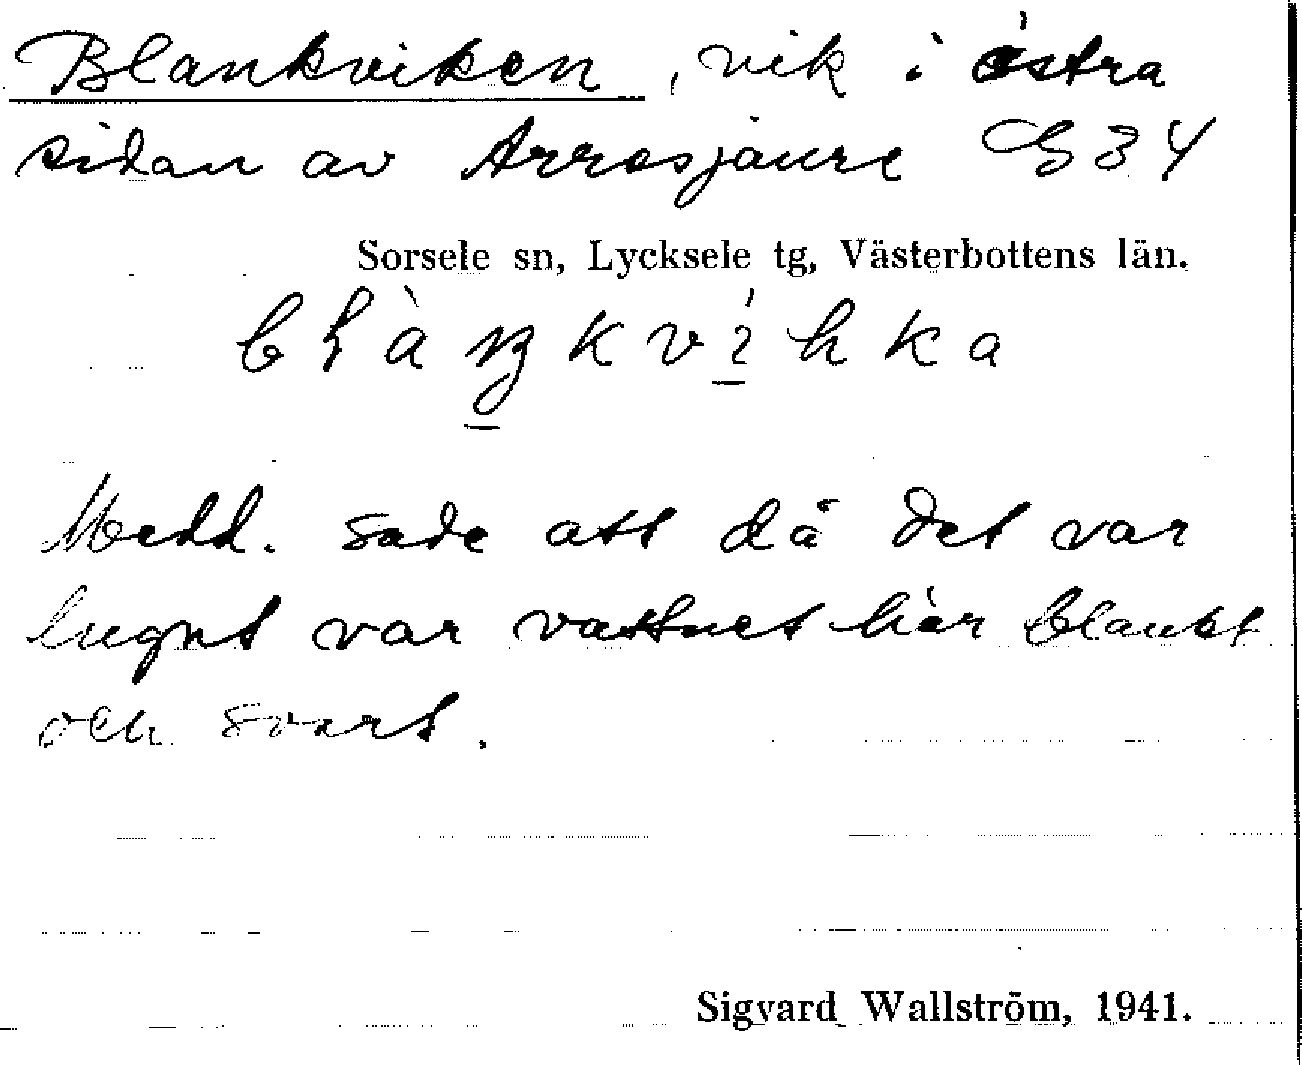 Blankviken, vik i östra
sidan av Arrasjaure G 34
Sorsele sn, Lycksele tg, Västerbottens län.
Medd. sade att då det var
lugnt var vattnet här blankt
och svart.
Sigvard Wallström, 1941.